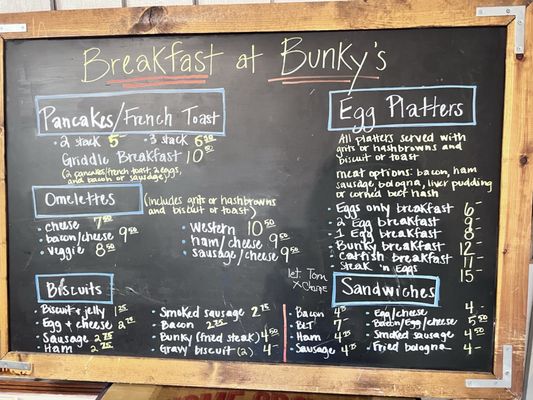 Breakfast at Bunky's
Pancakes/French Toast
• 2 stack 5 • 3 stack 6 50
Griddle Breakfast 10 50
(2 pancakes/french toast, 2 eggs,
and bacon or sausage)
Omelettes (includes grits or hashbrowns
and biscuit or toast)
• cheese 7 50
• bacon/cheese 9 50
• veggie 8 50
• Western 10 50
• ham/cheese 9 50
• sausage/cheese 9 50
Biscuits
• Biscuit & jelly 1 25
• Egg & cheese 2 75
• Sausage 2 75
• Ham 2 75
• Smoked sausage 2 75
• Bacon 2 75
• Bunky (fried steak) 4 50
• Gravy biscuit (2) 4-
Egg Platters
All platters served with
grits or hashbrowns and
biscuit or toast
meat options: bacon, ham
sausage, bologna, liver pudding
or corned beef hash
• Eggs only breakfast 6-
• 2 Egg breakfast 9-
• 1 Egg breakfast 8-
• Bunky breakfast 12-
• Catfish breakfast 11-
• Steak 'n Eggs 15-
let. Tom
Sandwiches
• Bacon 4
• BLT 7
• Ham 4
• Sausage 4
• Egg/cheese 4-
• Bacon/Egg/cheese 5 50
• Smoked sausage 4 50
• Fried bologna 4-